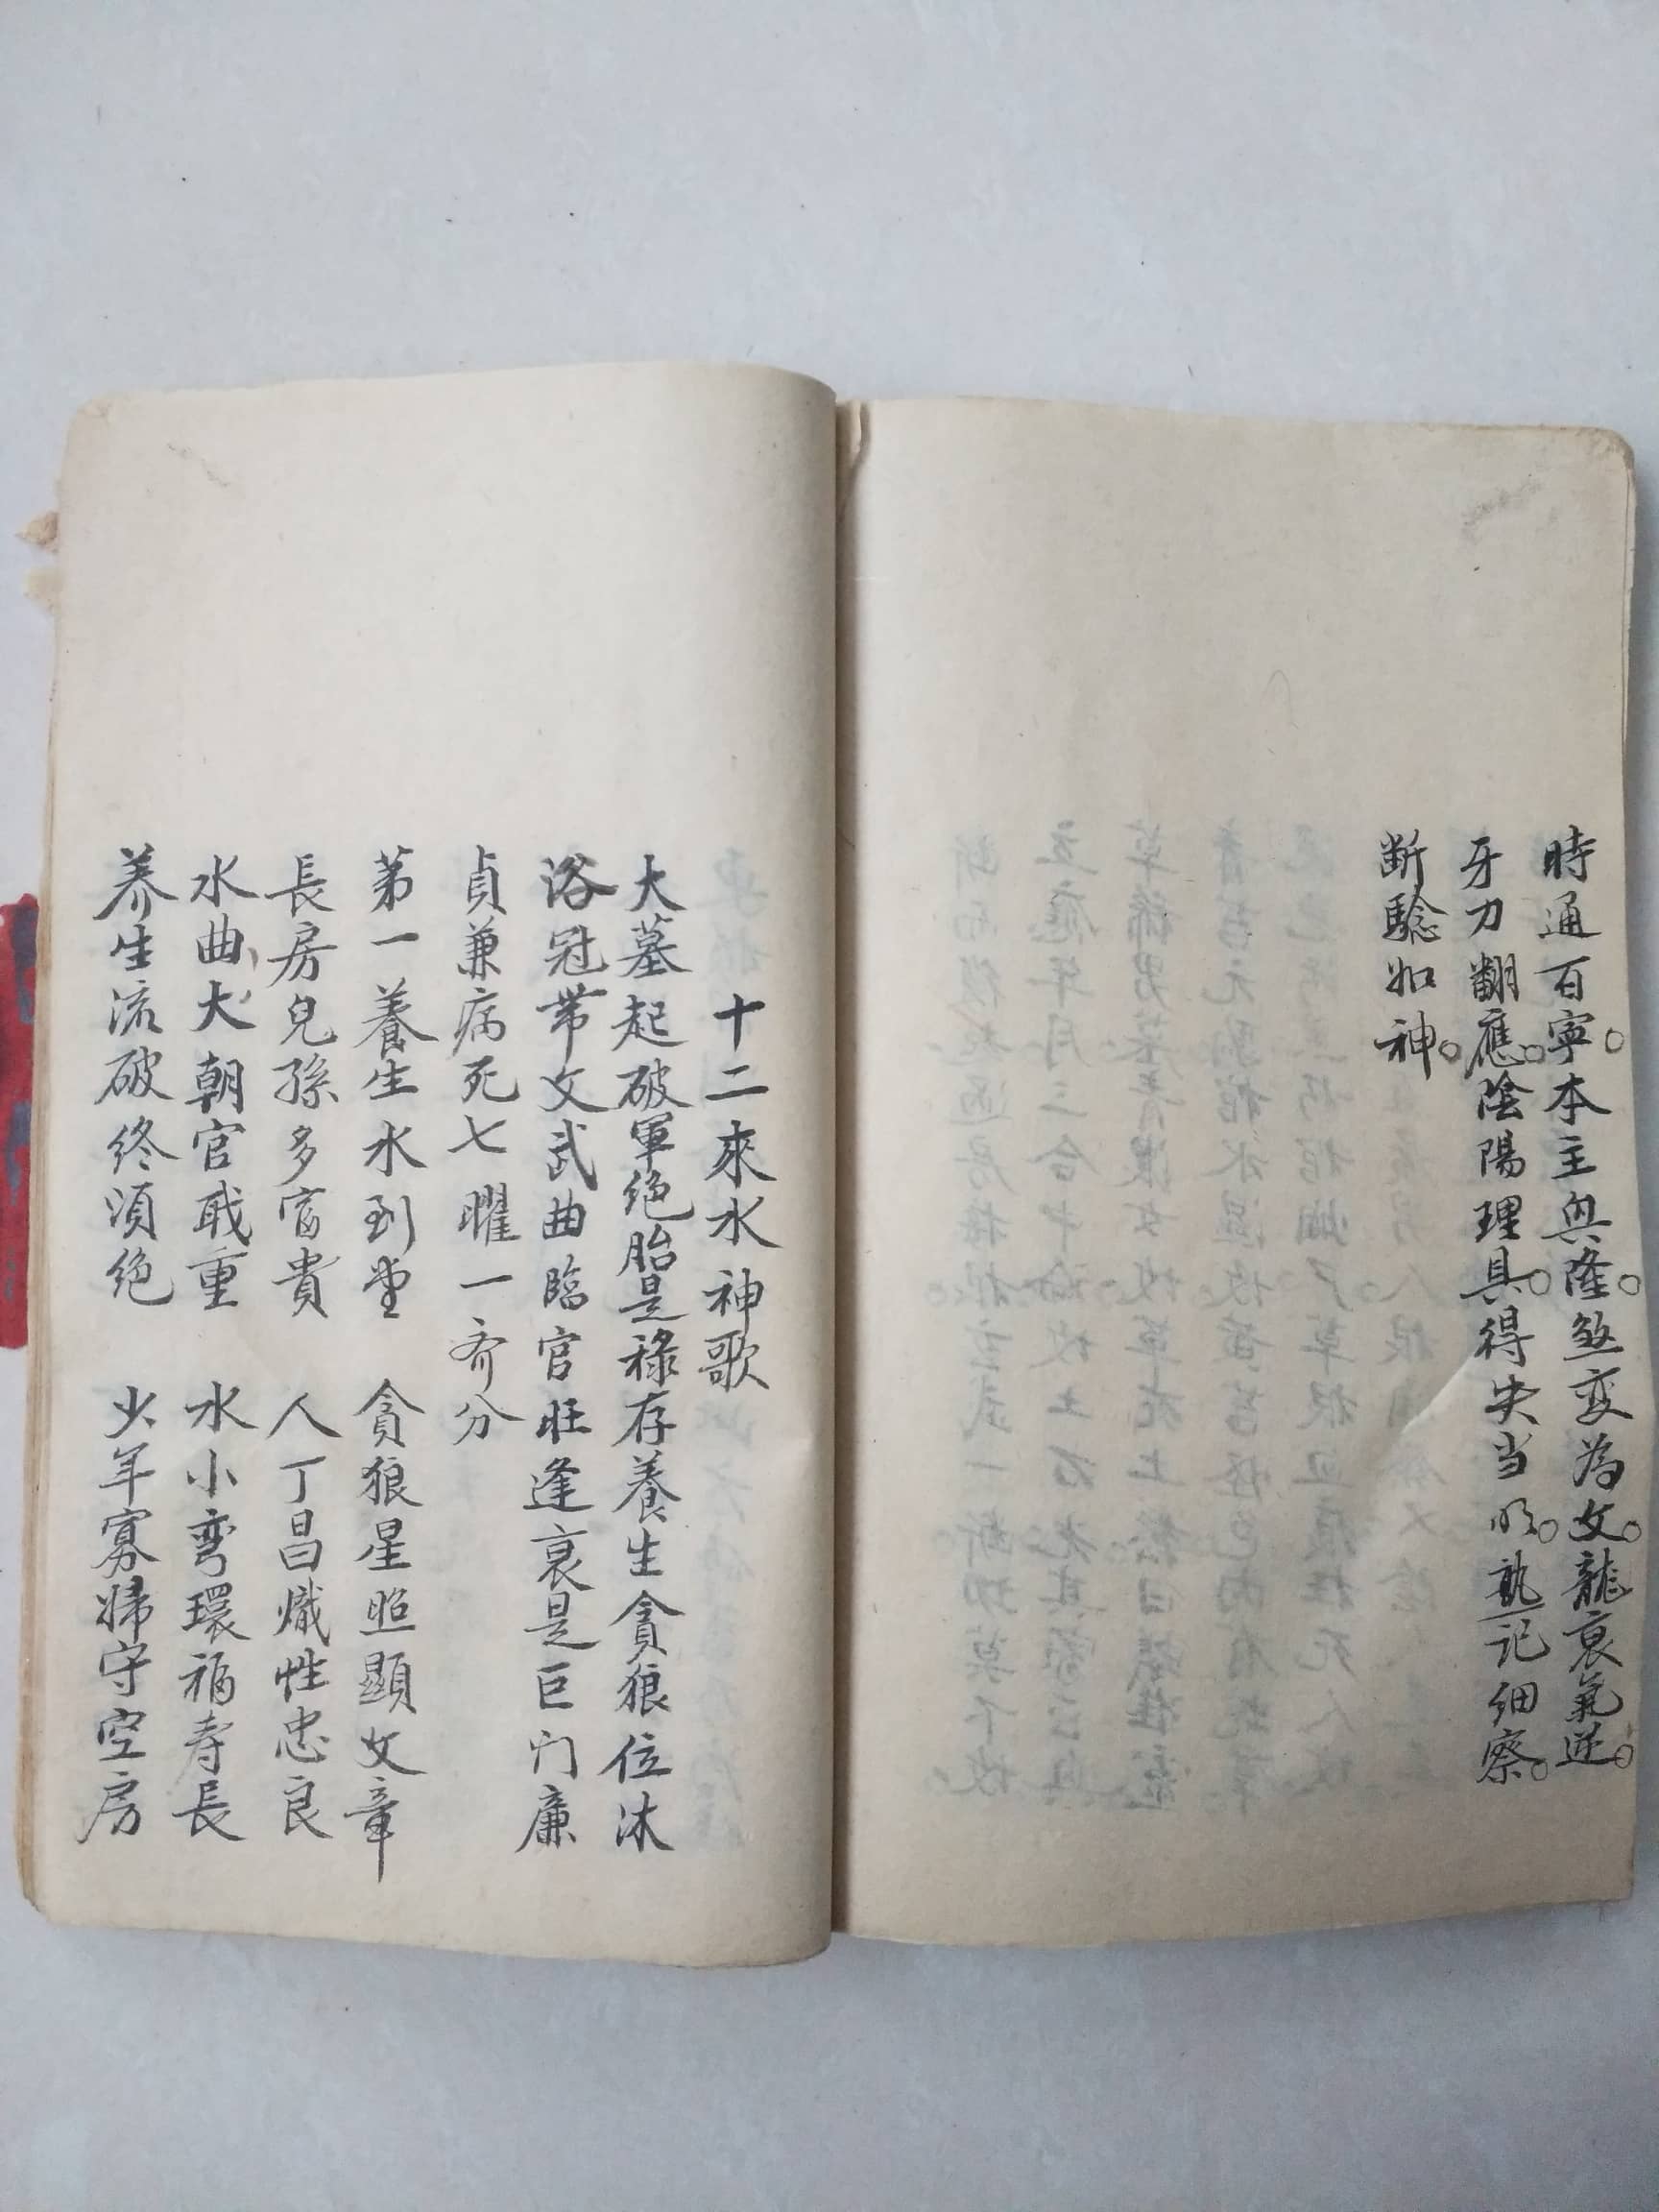 時通百寧。本主與隆。煞变為文。龍衰氣逆。
牙刀翻應。陰陽理具。得失当明。熟記细察。
断驗如神。
十二來水神歌
大墓起破軍绝胎是祿存養生貪狼位沐
浴冠带文武曲臨官旺逢衰是巨门廉
貞兼病死七曜一齐分
苐一養生水到堂 貪狼星照顯文章
長房兒孫多富貴 人丁昌熾性忠良
水曲大朝官職重 水小弯環福寿長
养生流破终須绝 少年寡婦守空房